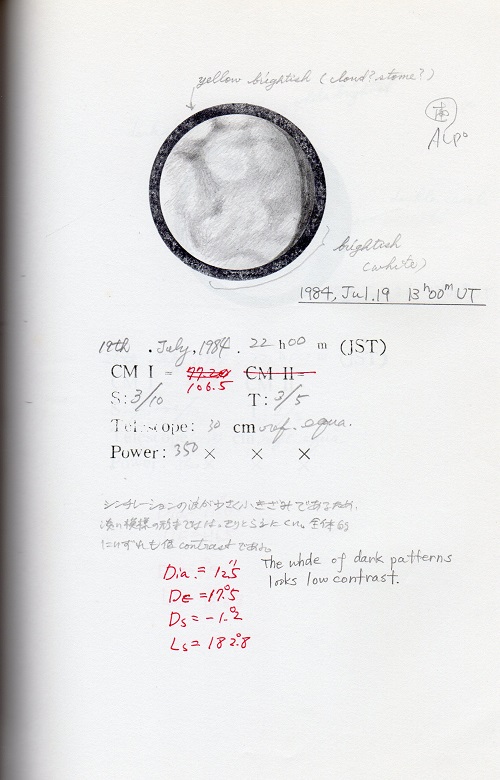 yellow brightish (cloud? stome?)
ALPO
brightish
(white)
1984, Jul. 19 13h00m UT
19th . July, 1984 . 22 h 00 m (JST)
CM I = 77.20 CM II =
106.5
S: 3/10 T: 3/5
Telescope: 30 cm ref. equa.
Power: 350 × × ×
シンチレーションの波が小さく小きざみであるため、
淡い模様の形までははっきりとらえにくい。全体的
にいずれも低contrastである。
The whole of dark patterns
looks low contrast.
Dia. = 12".5
DE = 17°.5
DS = -1°.2
LS = 182°.8